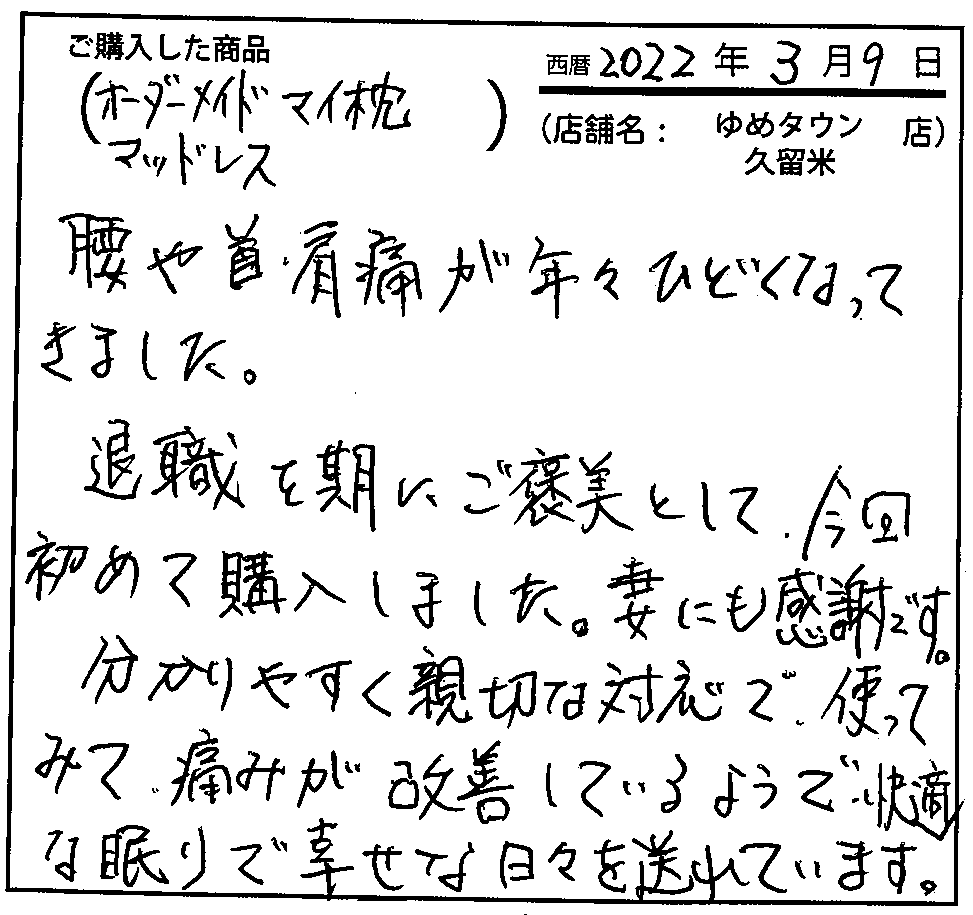 ご購入した商品
西暦 2022 年 3 月 9 日
(オーダーメイド マイ枕
マットレス)
(店舗名: ゆめタウン 久留米 店)
腰や首、肩痛が年々ひどくなって
きました。
退職を期に、ご褒美として、今回
初めて購入しました。妻にも感謝です。
分かりやすく親切な対応で、使って
みて、痛みが改善しているようで、快適
な眠りで幸せな日々を送れています。